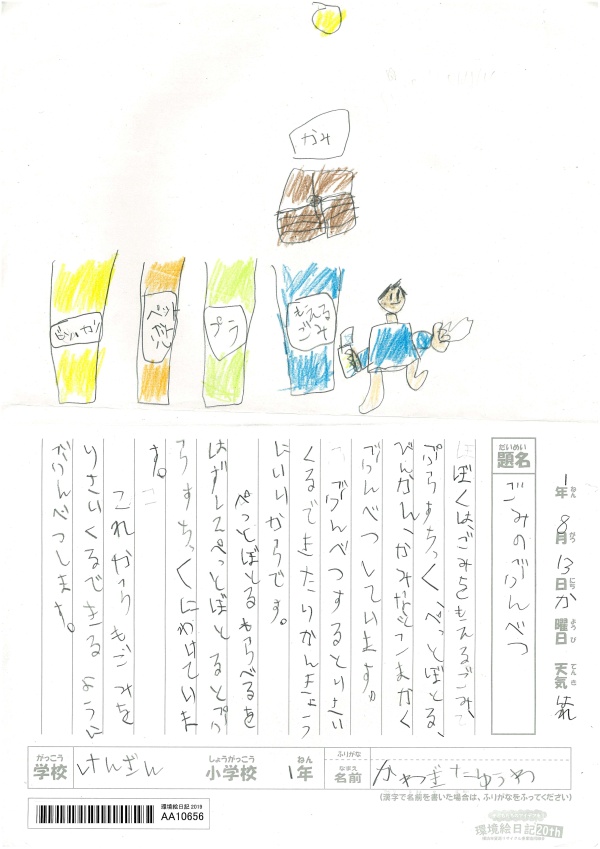 かみ
ビン・カン
ペットボトル
プラ
もえるごみ
だいめい
題名
ごみのぶんべつ
1年 8月 13日 か曜日 天気 はれ
ねん がつ にち ようび てんき
ぼくは、ごみをもえるごみ、
ぷらすちっく、ぺっとぼとる、
びんかん、かみなどこまかく
ぶんべつしています。
ぶんべつするとりさい
くるできたりかんきょう
にいいからです。
ぺっとぼとるもらべるを
はずしてぺっとぼとるとぷ
らすちっくにわけていま
す。
これからもごみを
りさいくるできるように
ぶんべつします。
がっこう
学校
けんざん
しょうがっこう
小学校
ねん
1年
ふりがな
なまえ
名前
(漢字で名前を書いた場合は、ふりがなをふってください)
環境絵日記 2019
AA10656
環境絵日記20th